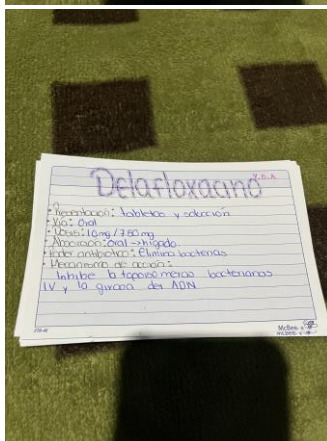 Delafloxacino
V.O.A
• Presentación: tabletas y solución
• Vía: Oral
• Dosis: 10mg / 750mg
• Absorción: Oral → hígado.
• Poder antibiótico: Elimina bacterias
• Mecanismo de acción:
Inhibe la topoisomeras bacterianas
IV y la girasa del ADN